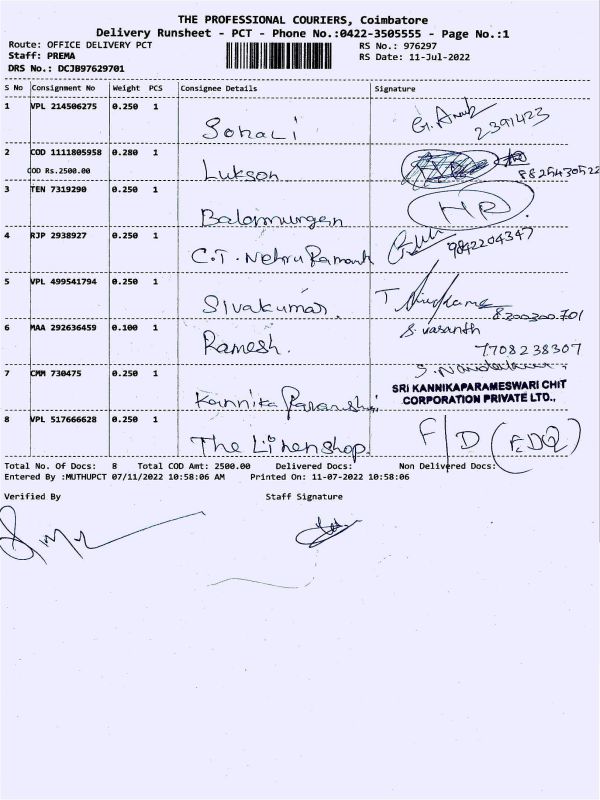 THE PROFESSIONAL COURIERS, Coimbatore
Delivery Runsheet - PCT - Phone No.:0422-3505555 - Page No.:1
Route: OFFICE DELIVERY PCT RS No.: 976297
Staff: PREMA RS Date: 11-Jul-2022
DRS No.: DCJB97629701
S No Consignment No Weight PCS Consignee Details Signature
1 VPL 214506275 0.250 1
Sonali 2391423
2 COD 1111805958 0.280 1
COD Rs.2500.00 Lukson 8825430522
3 TEN 7319290 0.250 1
Balamurgan
4 RJP 2938927 0.250 1 9842204347
C.T. Nehru Ramanth
5 VPL 499541794 0.250 1
Sivakumar. 8200300701
6 MAA 292636459 0.100 1 S. Vasanth
Ramesh. 7708238307
7 CMM 730475 0.250 1
SRI KANNIKAPARAMESWARI CHIT
Kannika CORPORATION PRIVATE LTD.,
8 VPL 517666628 0.250 1 F/D
The Linenshop.
Total No. Of Docs: 8 Total COD Amt: 2500.00 Delivered Docs: Non Delivered Docs:
Entered By :MUTHUPCT 07/11/2022 10:58:06 AM Printed On: 11-07-2022 10:58:06
Verified By Staff Signature